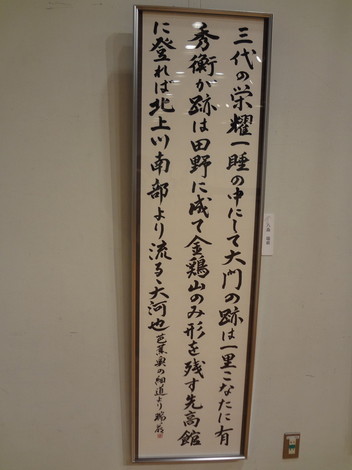 三代の栄耀一睡の中にして大門の跡は一里こなたに有
秀衡が跡は田野に成て金鶏山のみ形を残す先高館
に登れば北上川南部より流るゝ大河也 芭蕉奥の細道より 瑞